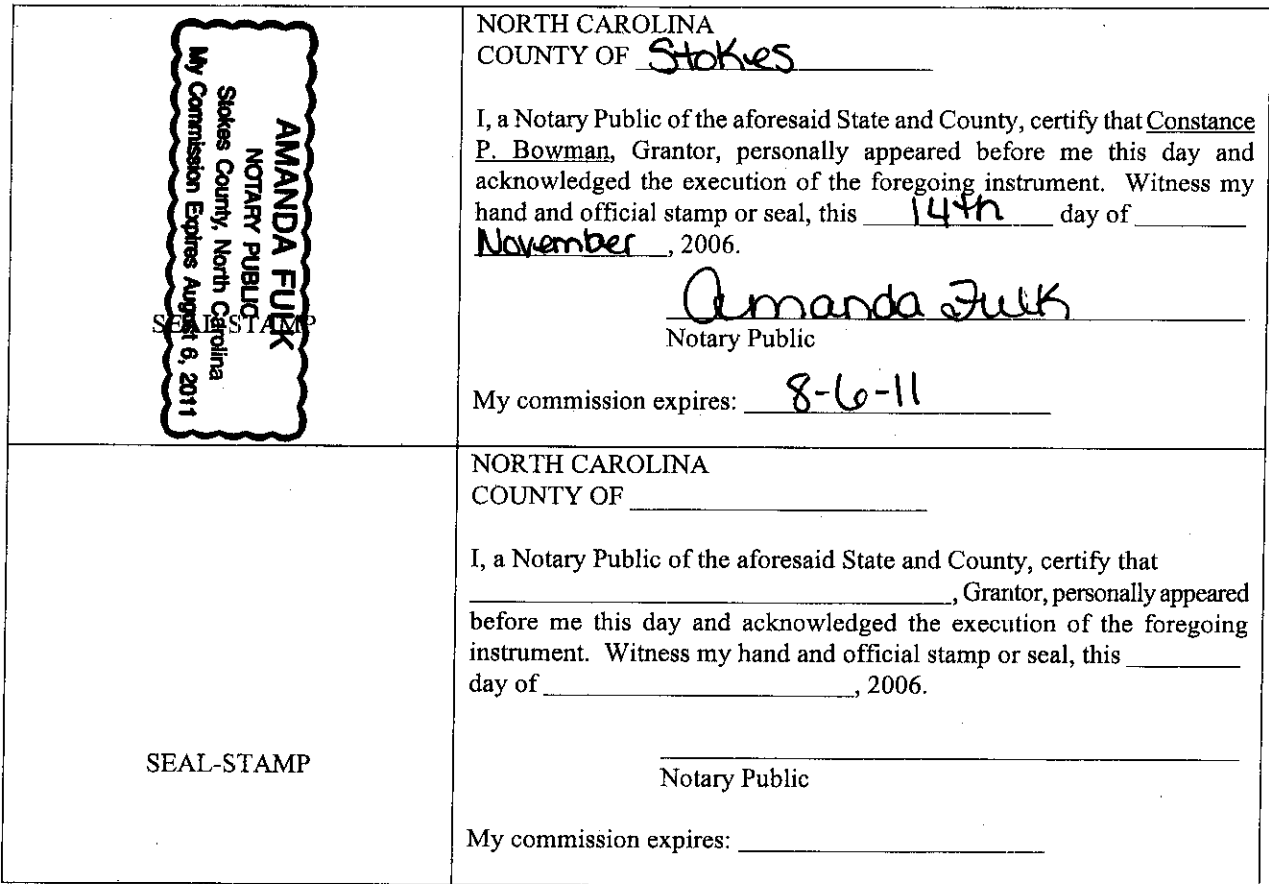 AMANDA FULK
NOTARY PUBLIC
Stokes County, North Carolina
My Commission Expires August 6, 2011
SEAL-STAMP
NORTH CAROLINA
COUNTY OF Stokes
I, a Notary Public of the aforesaid State and County, certify that Constance
P. Bowman, Grantor, personally appeared before me this day and
acknowledged the execution of the foregoing instrument. Witness my
hand and official stamp or seal, this 14th day of
November, 2006.
Amanda Fulk
Notary Public
My commission expires: 8-6-11
SEAL-STAMP
NORTH CAROLINA
COUNTY OF
I, a Notary Public of the aforesaid State and County, certify that
, Grantor, personally appeared
before me this day and acknowledged the execution of the foregoing
instrument. Witness my hand and official stamp or seal, this
day of , 2006.
Notary Public
My commission expires: